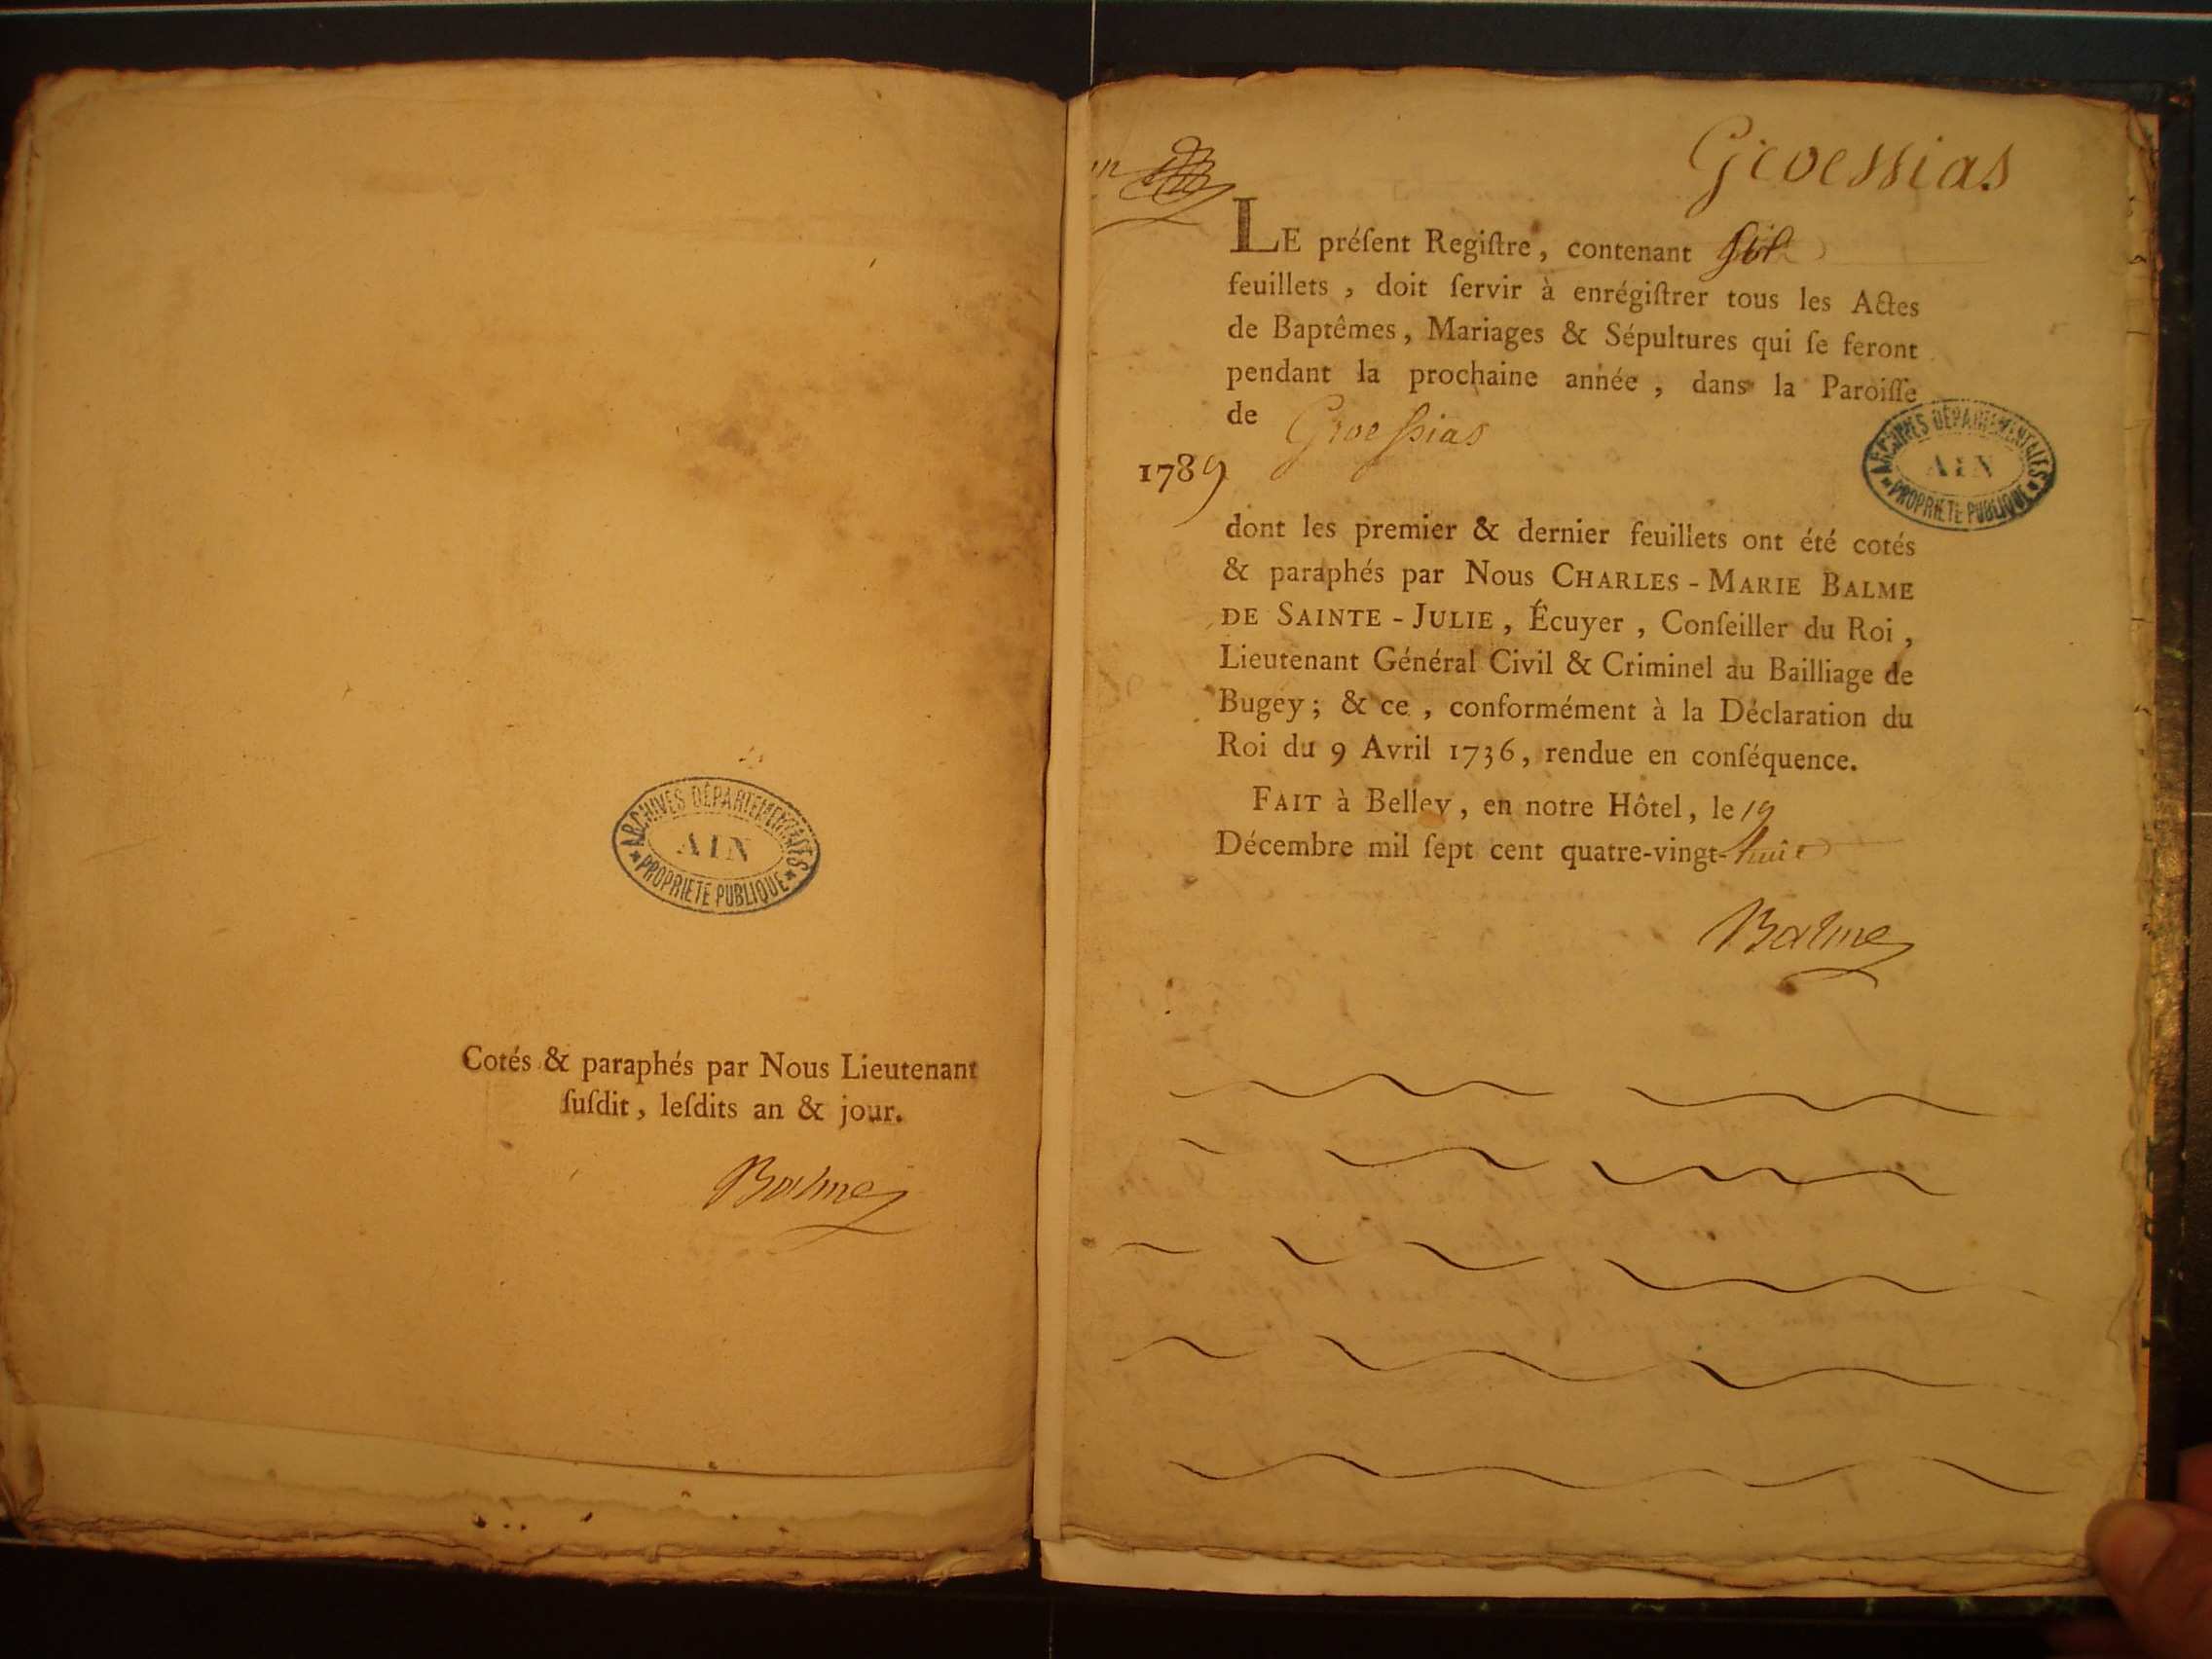 ARCHIVES DÉPARTEMENTALES
AIN
PROPRIETE PUBLIQUE
Cotés & paraphés par Nous Lieutenant
ſuſdit, leſdits an & jour.
Balme
Groessias
LE préſent Regiſtre, contenant
feuillets, doit ſervir à enrégiſtrer tous les Actes
de Baptêmes, Mariages & Sépultures qui ſe feront
pendant la prochaine année, dans la Paroiſſe
de Groeſsias
1789
ARCHIVES DÉPARTEMENTALES
AIN
PROPRIETE PUBLIQUE
dont les premier & dernier feuillets ont été cotés
& paraphés par Nous CHARLES-MARIE BALME
DE SAINTE-JULIE, Écuyer, Conſeiller du Roi,
Lieutenant Général Civil & Criminel au Bailliage de
Bugey; & ce, conformément à la Déclaration du
Roi du 9 Avril 1736, rendue en conſéquence.
FAIT à Belley, en notre Hôtel, le 19
Décembre mil ſept cent quatre-vingt-huit
Balme